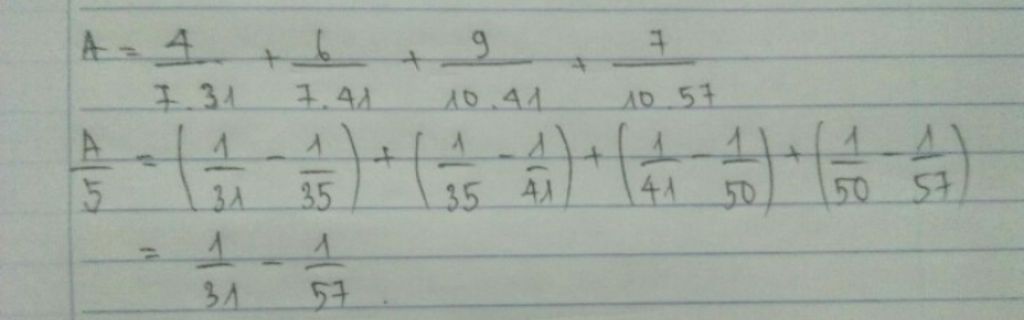 A = 4/7.31 + 6/7.41 + 9/10.41 + 7/10.57
A/5 = (1/31 - 1/35) + (1/35 - 1/41) + (1/41 - 1/50) + (1/50 - 1/57)
= 1/31 - 1/57.